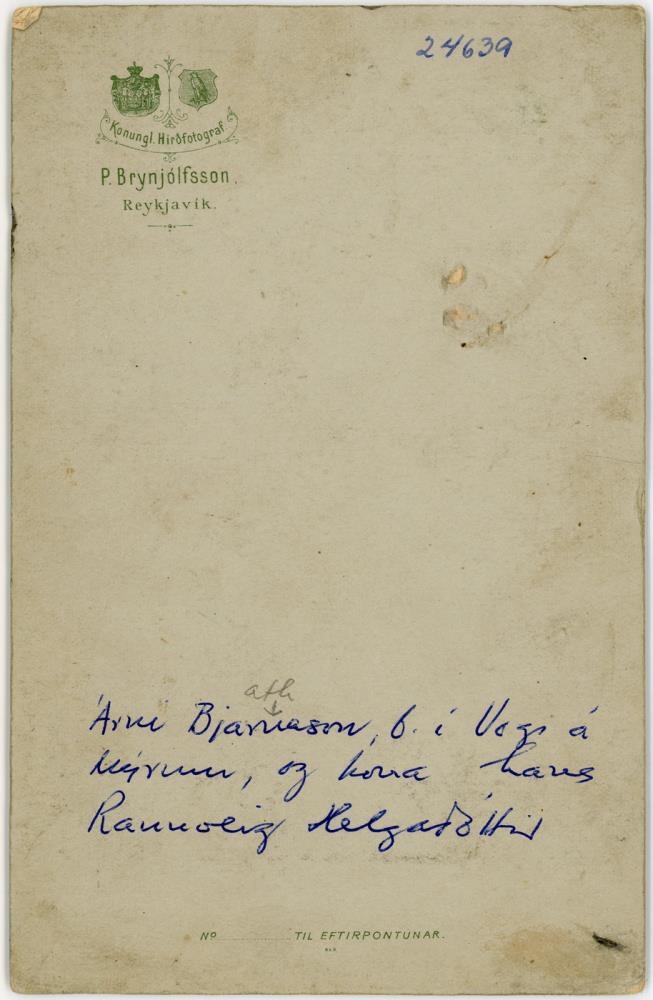 24639
Konungl. Hirðfotograf
P. Brynjólfsson.
Reykjavík.
ath
Árni Bjarnason, b. í Vogi á
Mýrum, og kona hans
Rannveig Helgadóttir
No TIL EFTIRPÖNTUNAR.